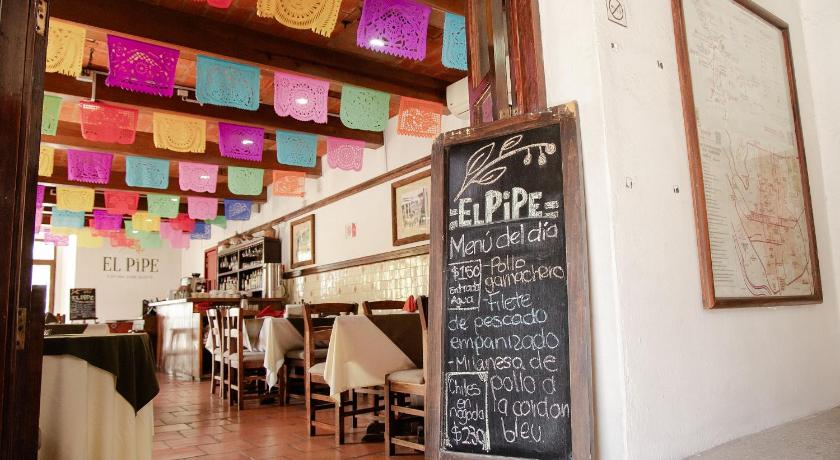 EL PIPE
EL PIPE
EL PIPE
Menú del día
$150
Entrada
Agua
-Pollo
garnachero
-Filete
de pescado
empanizado
-Milanesa de
pollo a
la cordon
bleu
Chiles
en
nogada
$230